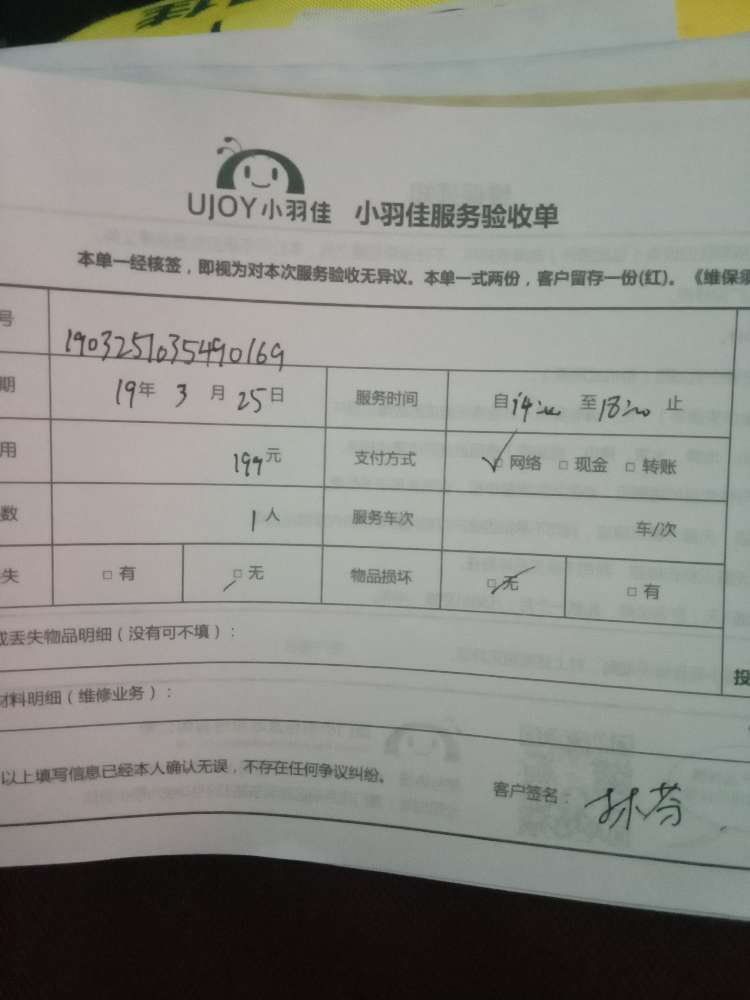 UJOY小羽佳 小羽佳服务验收单
本单一经核签，即视为对本次服务验收无异议。本单一式两份，客户留存一份(红)。《维保须
号 1903251035490169
期 19年 3月 25日 服务时间 自14:00 至18:00 止
用 199元 支付方式 ☑网络 □现金 □转账
数 1人 服务车次 车/次
失 □有 ☑无 物品损坏 ☑无 □有
或丢失物品明细（没有可不填）：
投
材料明细（维修业务）：
以上填写信息已经本人确认无误，不存在任何争议纠纷。 客户签名： 林芬